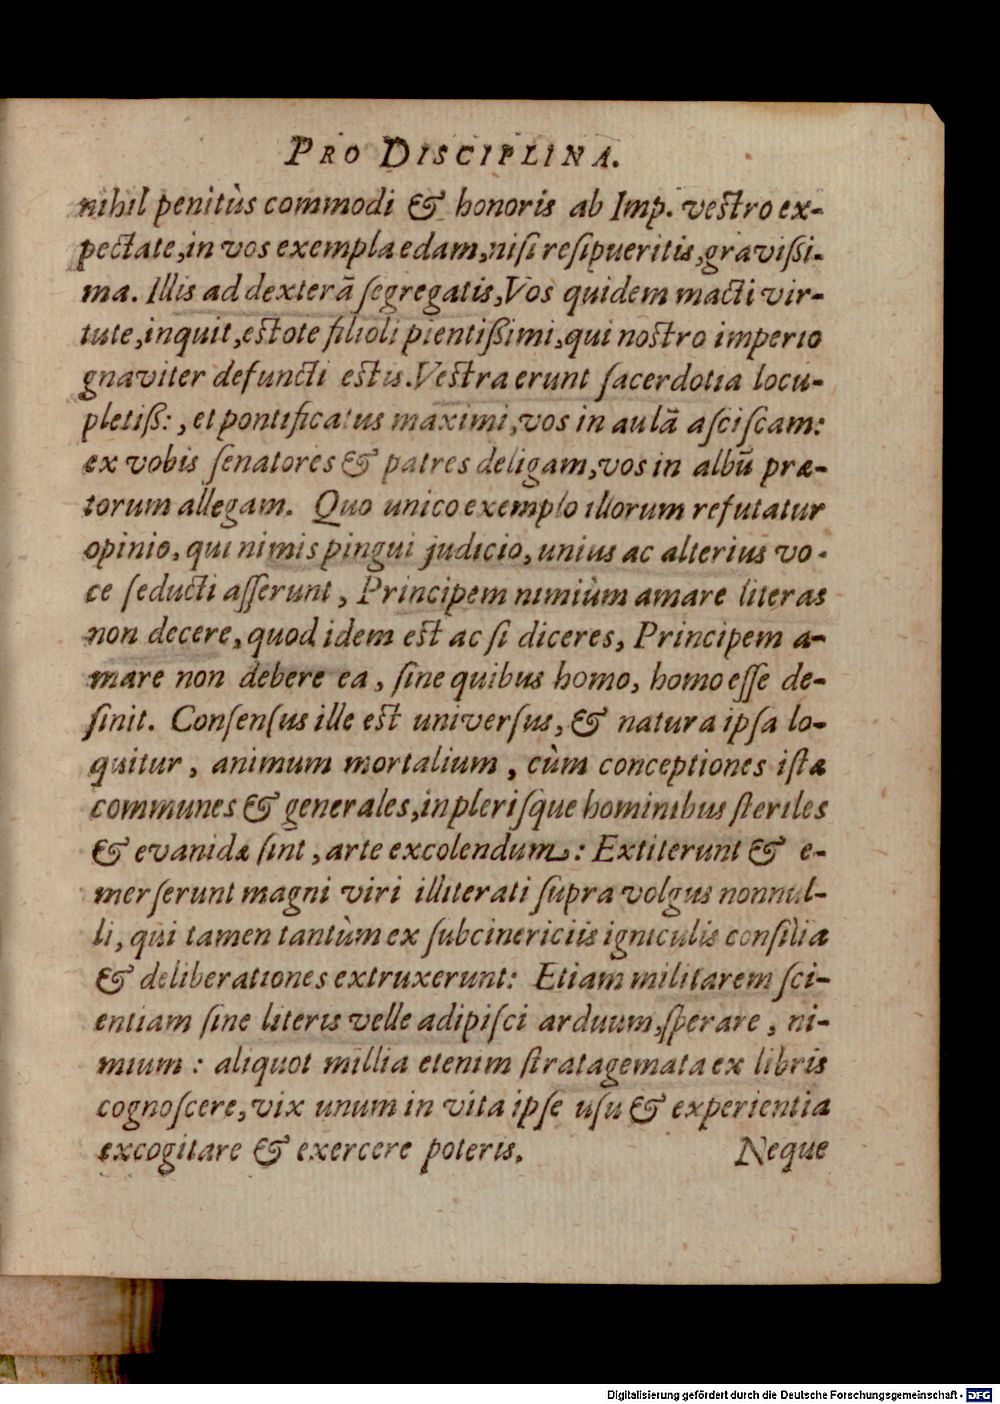 PRO DISCIPLINA.
nihil penitùs commodi & honoris ab Imp. vestro ex-
pectate, in vos exempla edam, nisi resipueritis, gravissi-
ma. Illis ad dexterā segregatis, Vos quidem macti vir-
tute, inquit, estote filioli pientissimi, qui nostro imperio
gnaviter defuncti estis. Vestra erunt sacerdotia locu-
pletiß:, et pontificatus maximi, vos in aulā asciscam:
ex vobis senatores & patres deligam, vos in albū præ-
torum allegam. Quo unico exemplo illorum refutatur
opinio, qui nimis pingui judicio, unius ac alterius vo-
ce seducti asserunt, Principem nimiùm amare literas
non decere, quod idem est ac si diceres, Principem a-
mare non debere ea, sine quibus homo, homo esse de-
sinit. Consensus ille est universus, & natura ipsa lo-
quitur, animum mortalium, cùm conceptiones istæ
communes & generales, in plerisque hominibus steriles
& evanidæ sint, arte excolendum: Extiterunt & e-
merserunt magni viri illiterati supra volgus nonnul-
li, qui tamen tantùm ex subcinericiis igniculis consilia
& deliberationes extruxerunt: Etiam militarem sci-
entiam sine literis velle adipisci arduum, sperare, ni-
mium: aliquot millia etenim stratagemata ex libris
cognoscere, vix unum in vita ipse usu & experientia
excogitare & exercere poteris.
Neque
Digitalisierung gefördert durch die Deutsche Forschungsgemeinschaft - DFG